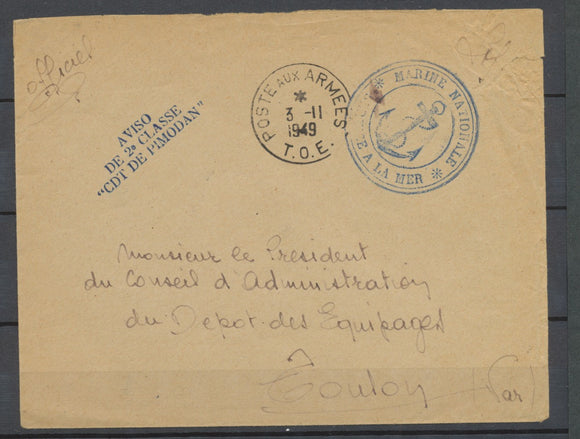 Officiel
AVISO
DE 2e CLASSE
"CDT DE PIMODAN"
POSTE AUX ARMEES
*
3 -11
1949
T.O.E.
* MARINE NATIONALE *
A LA MER
Monsieur le Président
du Conseil d'Administration
du Dépot des Equipages
à
Toulon (Var)